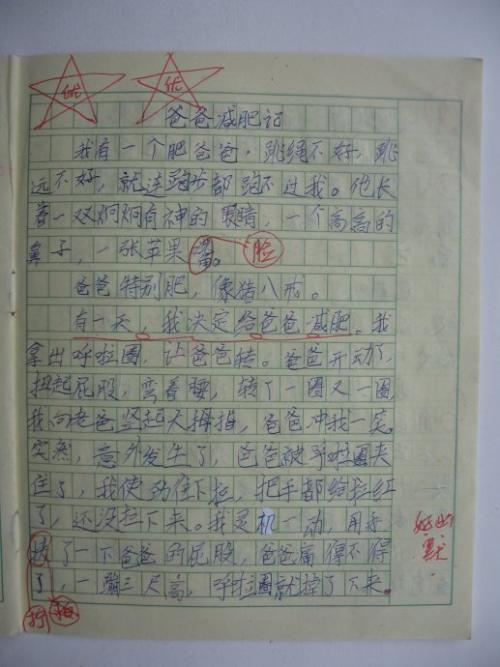 优 优
爸爸减肥记
我有一个肥爸爸，跳绳不好，跳
远不好，就连跑步都跑不过我。他长
着一双炯炯有神的眼睛，一个高高的
鼻子，一张苹果 。 脸
爸爸特别肥，像猪八戒。
有一天，我决定给爸爸减肥。我
拿出呼拉圈，让爸爸转。爸爸开动了，
扭起屁股，弯着腰，转了一圈又一圈
我向老爸竖起大拇指，爸爸冲我一笑。
突然，意外发生了，爸爸被呼啦圈夹
住了，我使劲往下拉，把手都给拉红
了，还没拉下来。我灵机一动，用手
了一下爸爸的屁股，爸爸痛得不得
了，一蹦三尺高，呼拉圈就掉了下来。